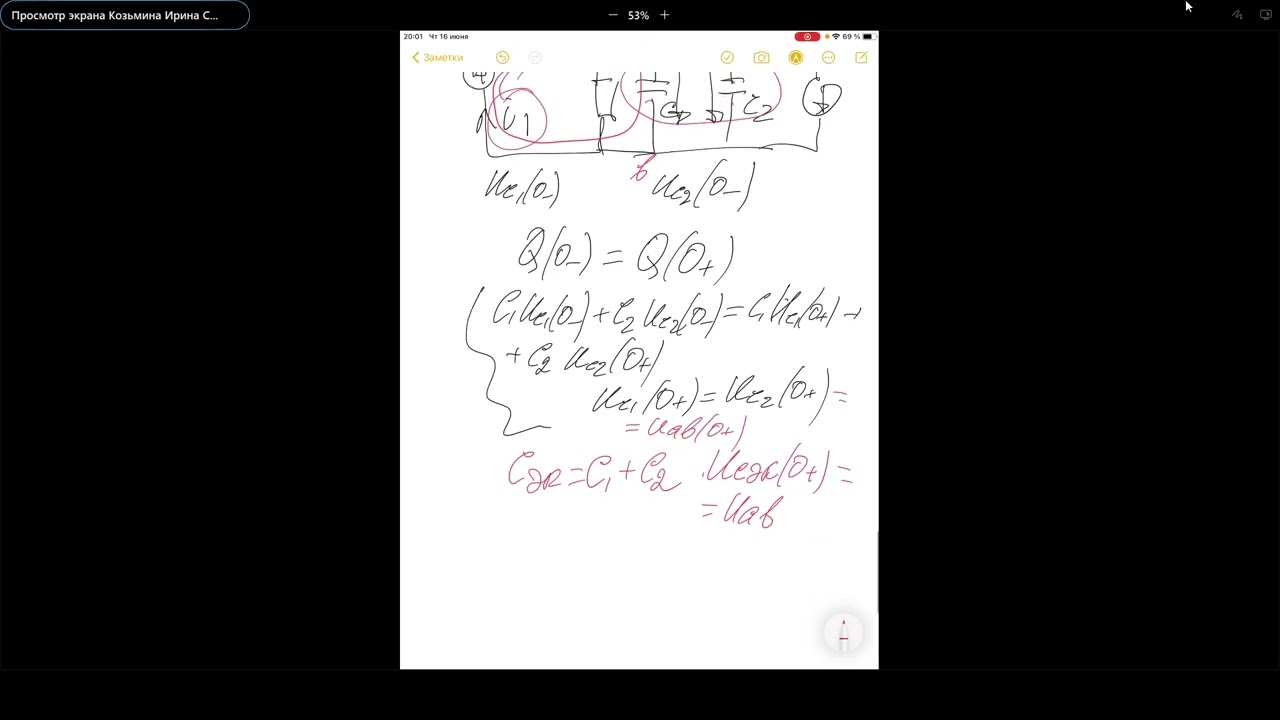 Просмотр экрана Козьмина Ирина С...
53%
20:01 Чт 16 июня
69 %
Заметки
C2
i1
в
Uc1(0-) Uc2(0-)
Q(0-) = Q(0+)
C1Uc1(0-) + C2Uc2(0-) = C1Uc1(0+) +
+ C2 Uc2(0+)
Uc1(0+) = Uc2(0+) =
= Uав(0+)
Cэк = C1 + C2 Uсэк(0+) =
= Uав